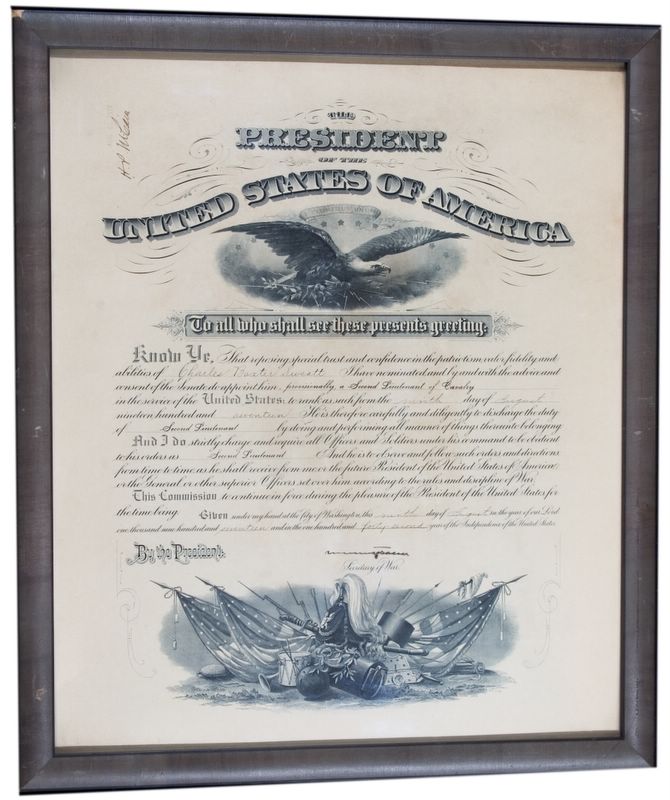 H.P. McCain
THE
PRESIDENT
OF THE
UNITED STATES OF AMERICA
To all who shall see these presents greeting:
Know Ye, That reposing special trust and confidence in the patriotism valor, fidelity and
abilities of Charles Baxter Sweatt I have nominated and by and with the advice and
consent of the Senate do appoint him provisionally, a Second Lieutenant of Cavalry
in the service of the United States: to rank as such from the ninth day of August
nineteen hundred and seventeen He is therefore carefully and diligently to discharge the duty
of Second Lieutenant by doing and performing all manner of things thereunto belonging
And I do strictly charge and require all Officers and Soldiers under his command to be obedient
to his orders as Second Lieutenant And he is to observe and follow such orders and directions
from time to time as he shall receive from me or the future President of the United States of America
or the General or other superior Officers set over him according to the rules and discipline of War.
This Commission to continue in force during the pleasure of the President of the United States for
the time being.
Given under my hand at the City of Washington, this ninth day of August in the year of our Lord
one thousand nine hundred and seventeen and in the one hundred and forty second year of the Independence of the United States
By the President:
Secretary of War